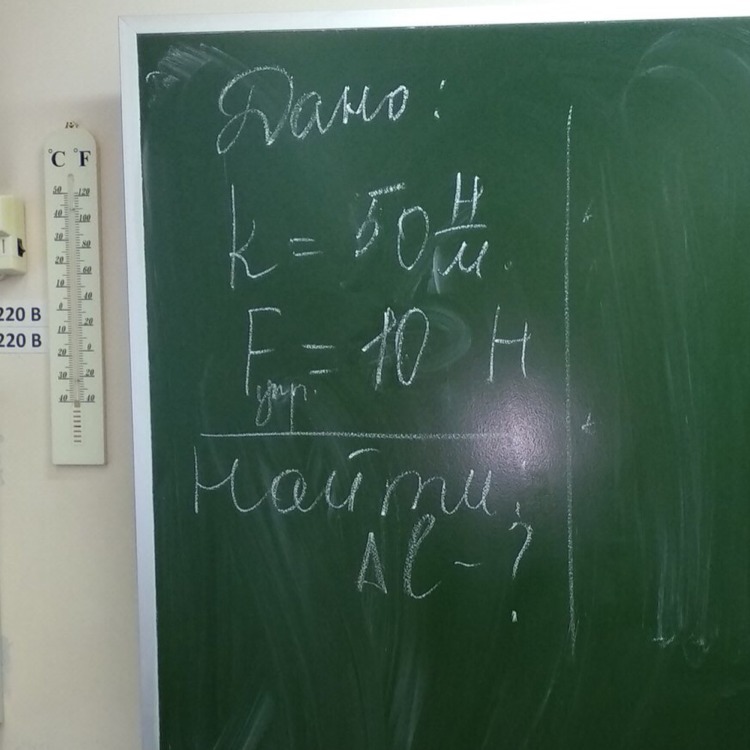 Дано:
k = 50 Н/м.
Fупр. = 10 Н
Найти
Δl - ?
°C °F
50 120
40 100
30 80
20 60
10 40
0 20
10 0
20 20
30 40
40
220 В
220 В